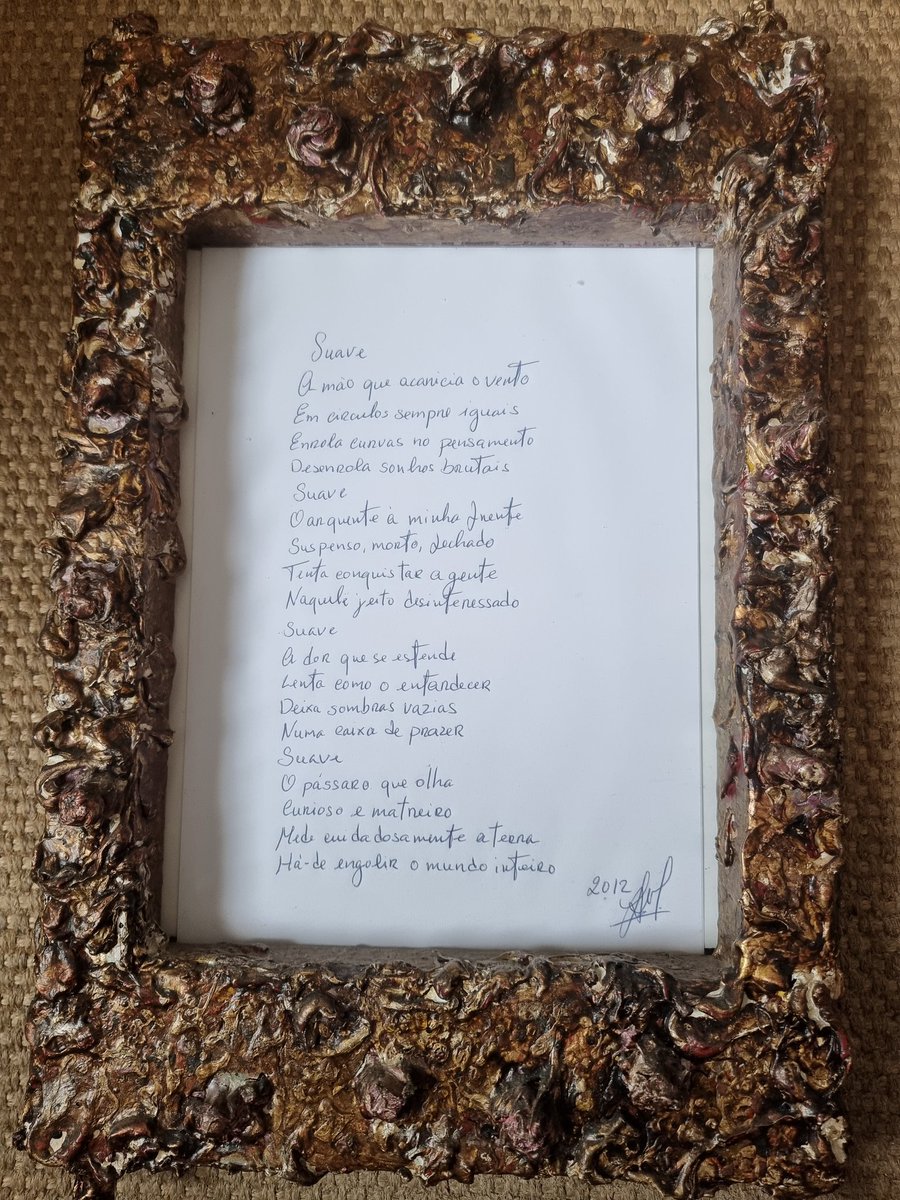 Suave
A mão que acaricia o vento
Em círculos sempre iguais
Enrola curvas no pensamento
Desenrola sonhos brutais
Suave
O arquente à minha frente
Suspenso, morto, fechado
Tenta conquistar a gente
Naquele jeito desinteressado
Suave
A dor que se estende
Lenta como o entardecer
Deixa sombras vazias
Numa caixa de prazer
Suave
O pássaro que olha
Curioso e matreiro
Mede cuidadosamente a terra
Há-de engolir o mundo inteiro
2012